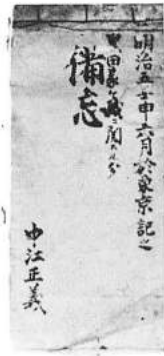 明治五壬申六月於東京記之
田家義ニ関スル分
備忘
中江正義